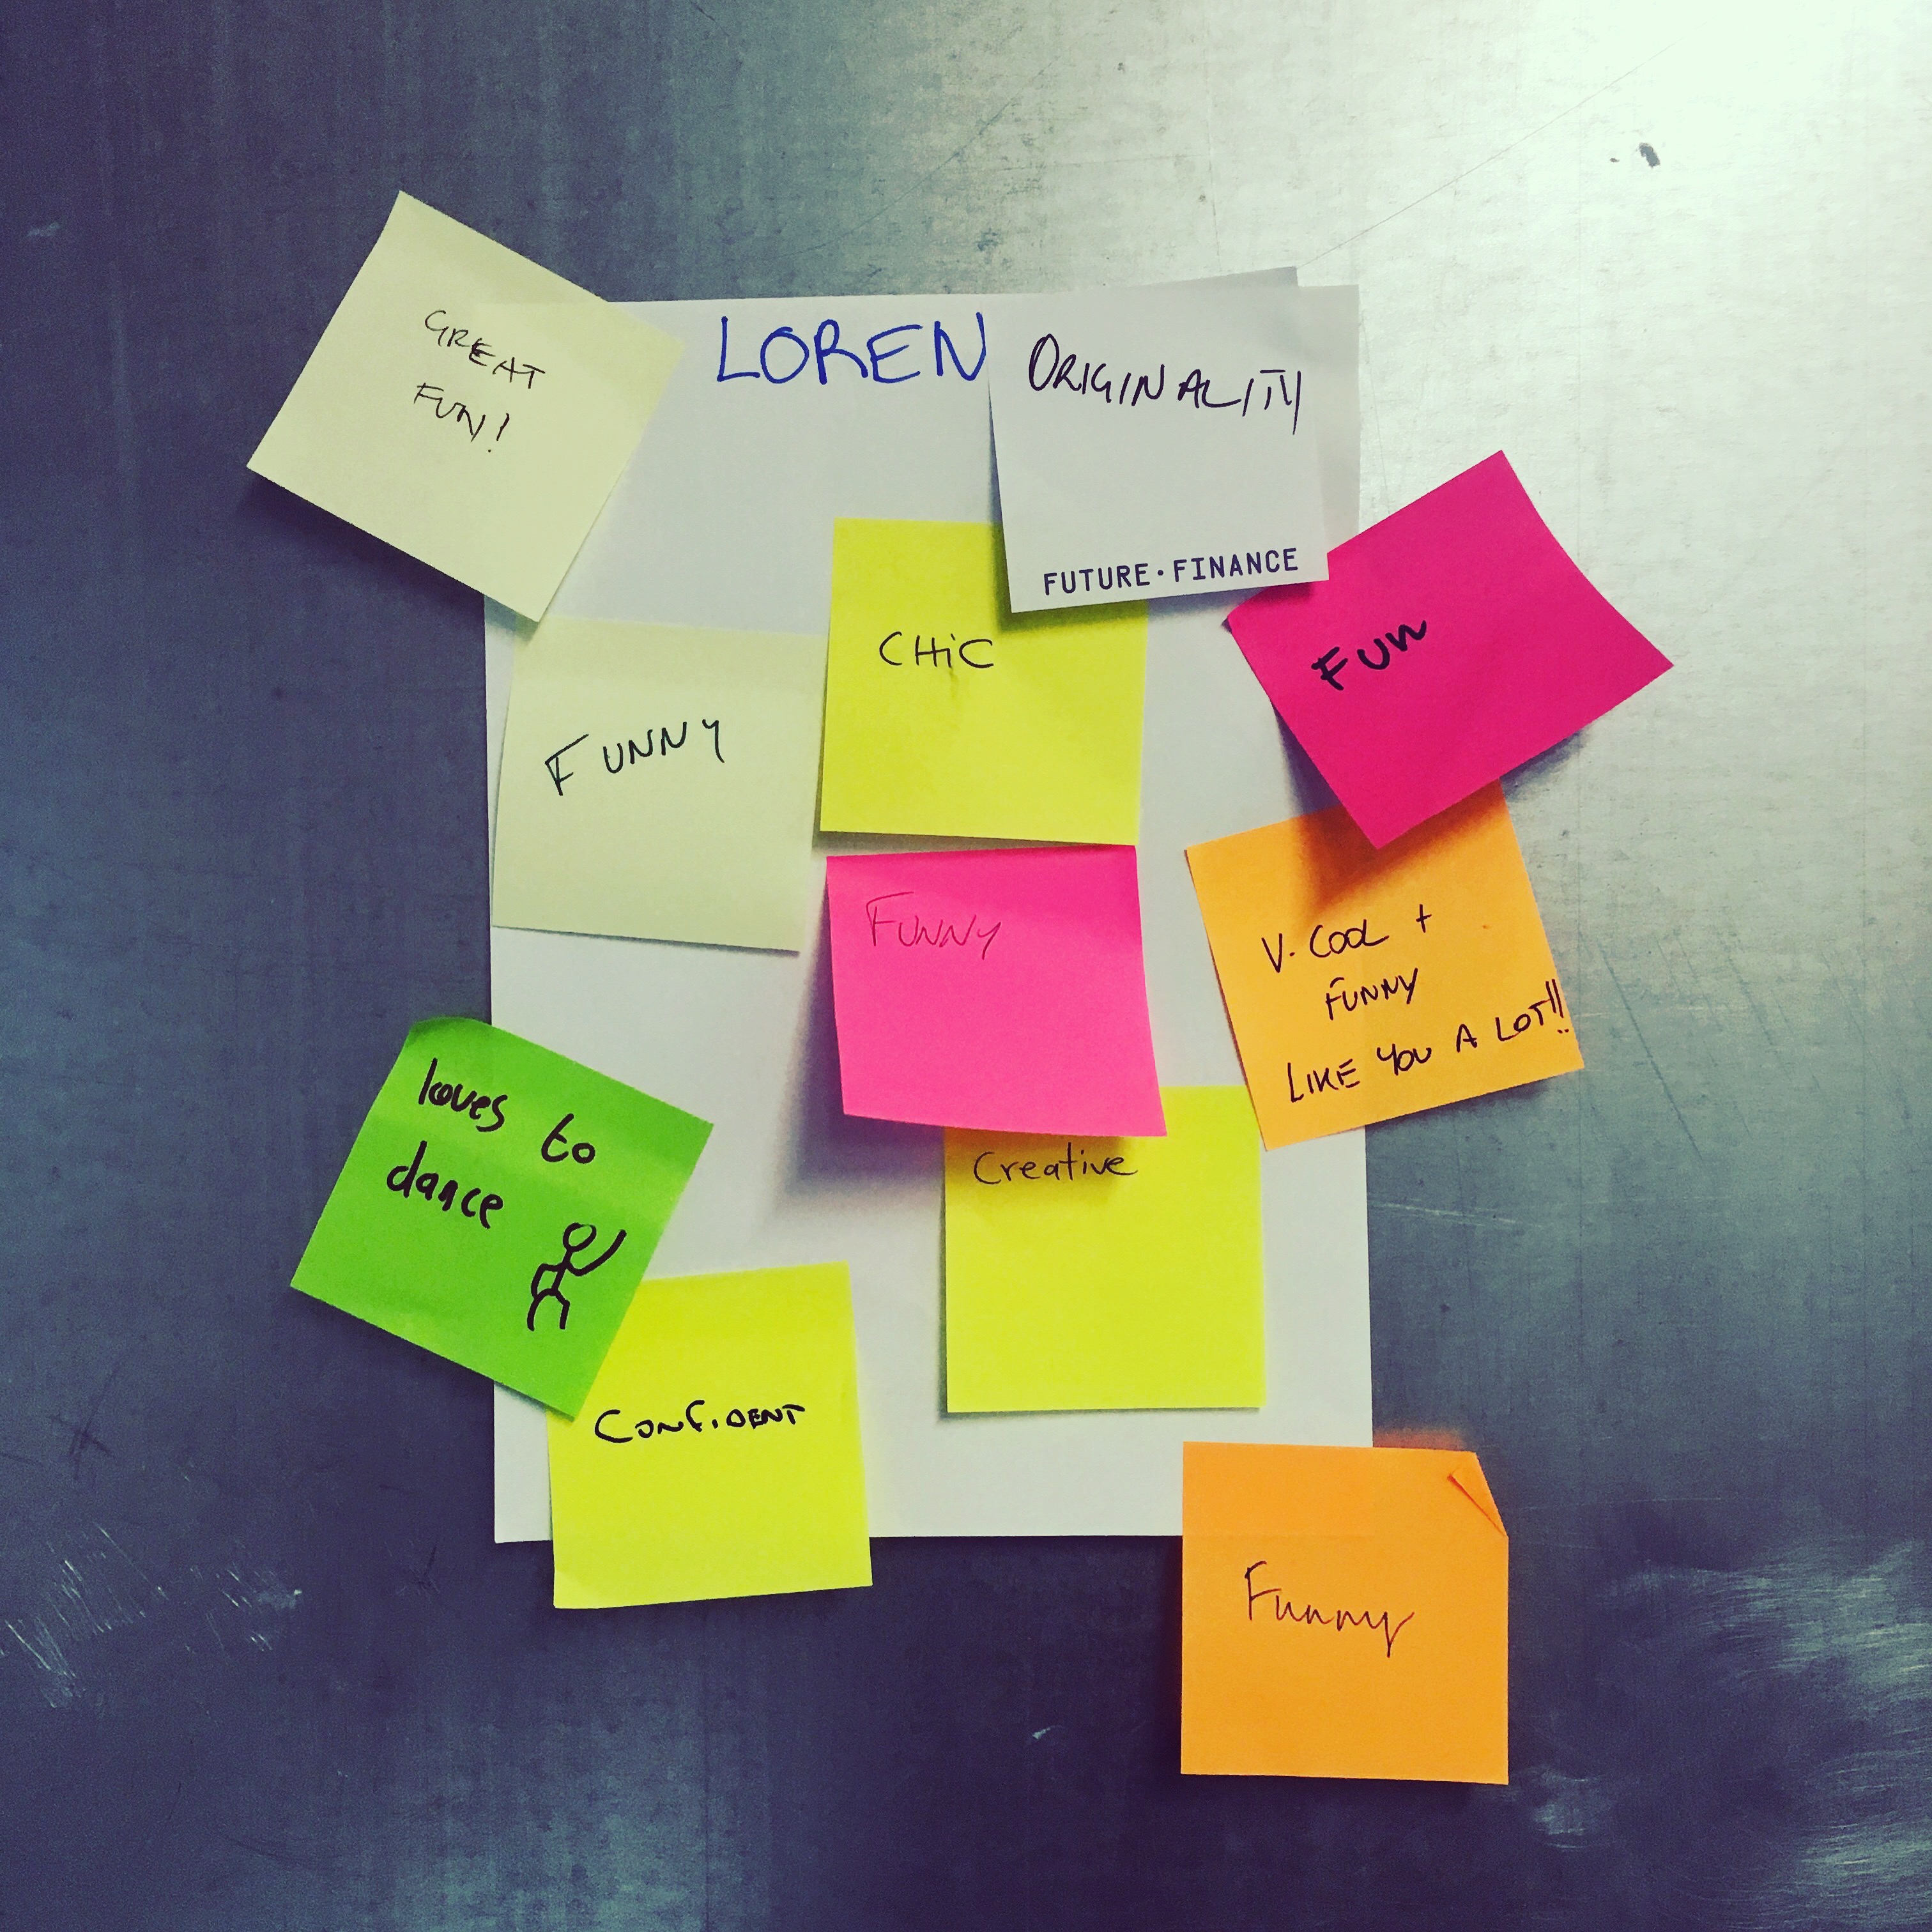 LOREN
GREAT
FUN!
ORIGINALITY
FUTURE·FINANCE
CHiC
Fun
FUNNY
FUNNY
V. COOL +
FUNNY
LIKE YOU A LOT!!
loves to
dance
Creative
CONFIDENT
Funny